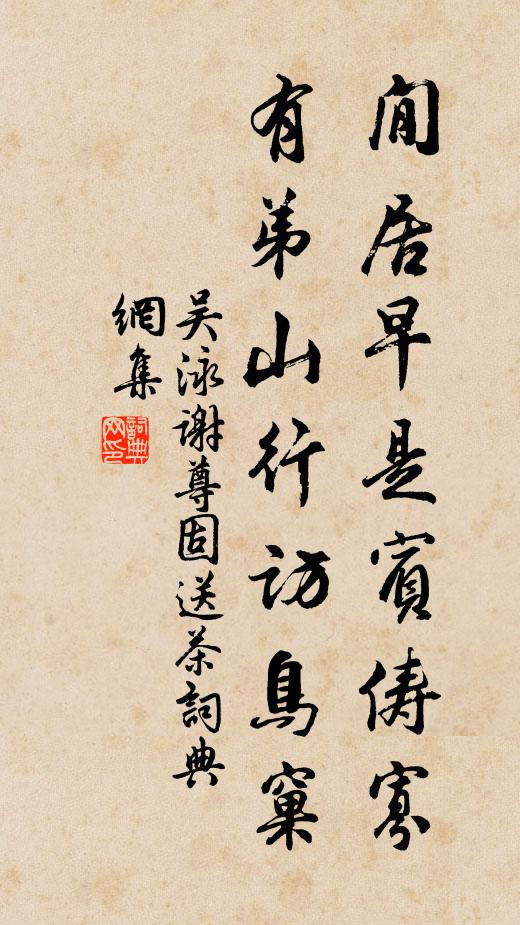 閒居早是賓儔寡
有弟山行訪鳥窠
吳泳謝尊固送茶詞典
網集
詞典
网印